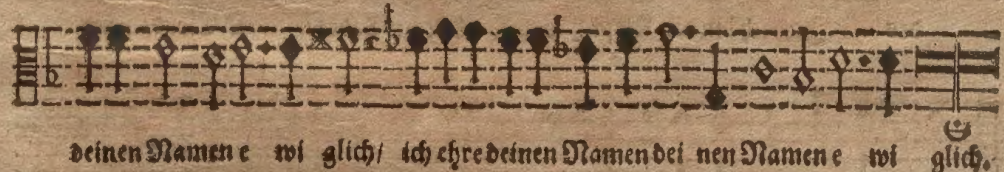 deinen Namen e wi glich/ ich ehre deinen Namen dei nen Namen e wi glich.